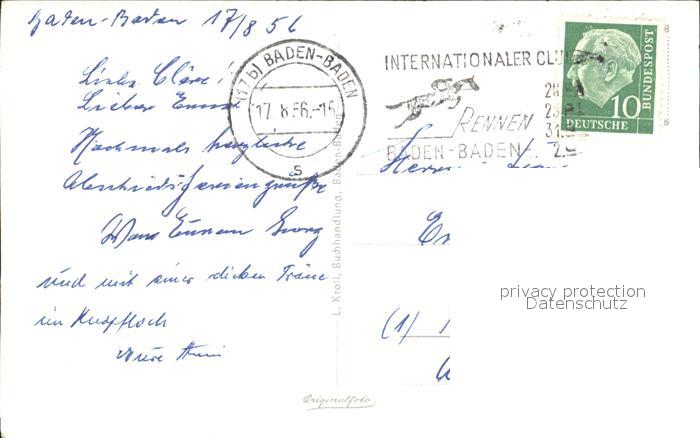 Baden-Baden 17/8 56
Liebe Cläre!
Lieber Ernst
Nochmals herzliche
Abschiedsferiengrüße
Euer Georg
und mit einer dicken Träne
im Knopfloch
Eure
(17b) BADEN-BADEN
17.8.56.-16
s
INTERNATIONALER CLUB
RENNEN
BADEN-BADEN
DEUTSCHE
BUNDESPOST
10
Herrn
(1)
L. Kroll, Buchhandlung, Baden-Baden
Originalfoto
privacy protection
Datenschutz